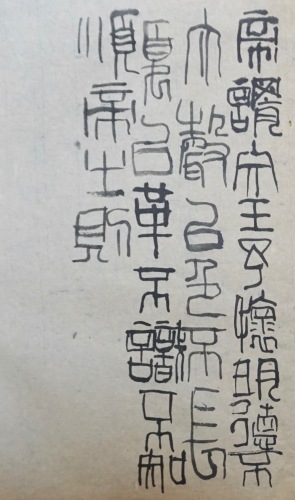 帝謂文王予懷明德不
大聲以色不長
夏以革不識不知
順帝之則